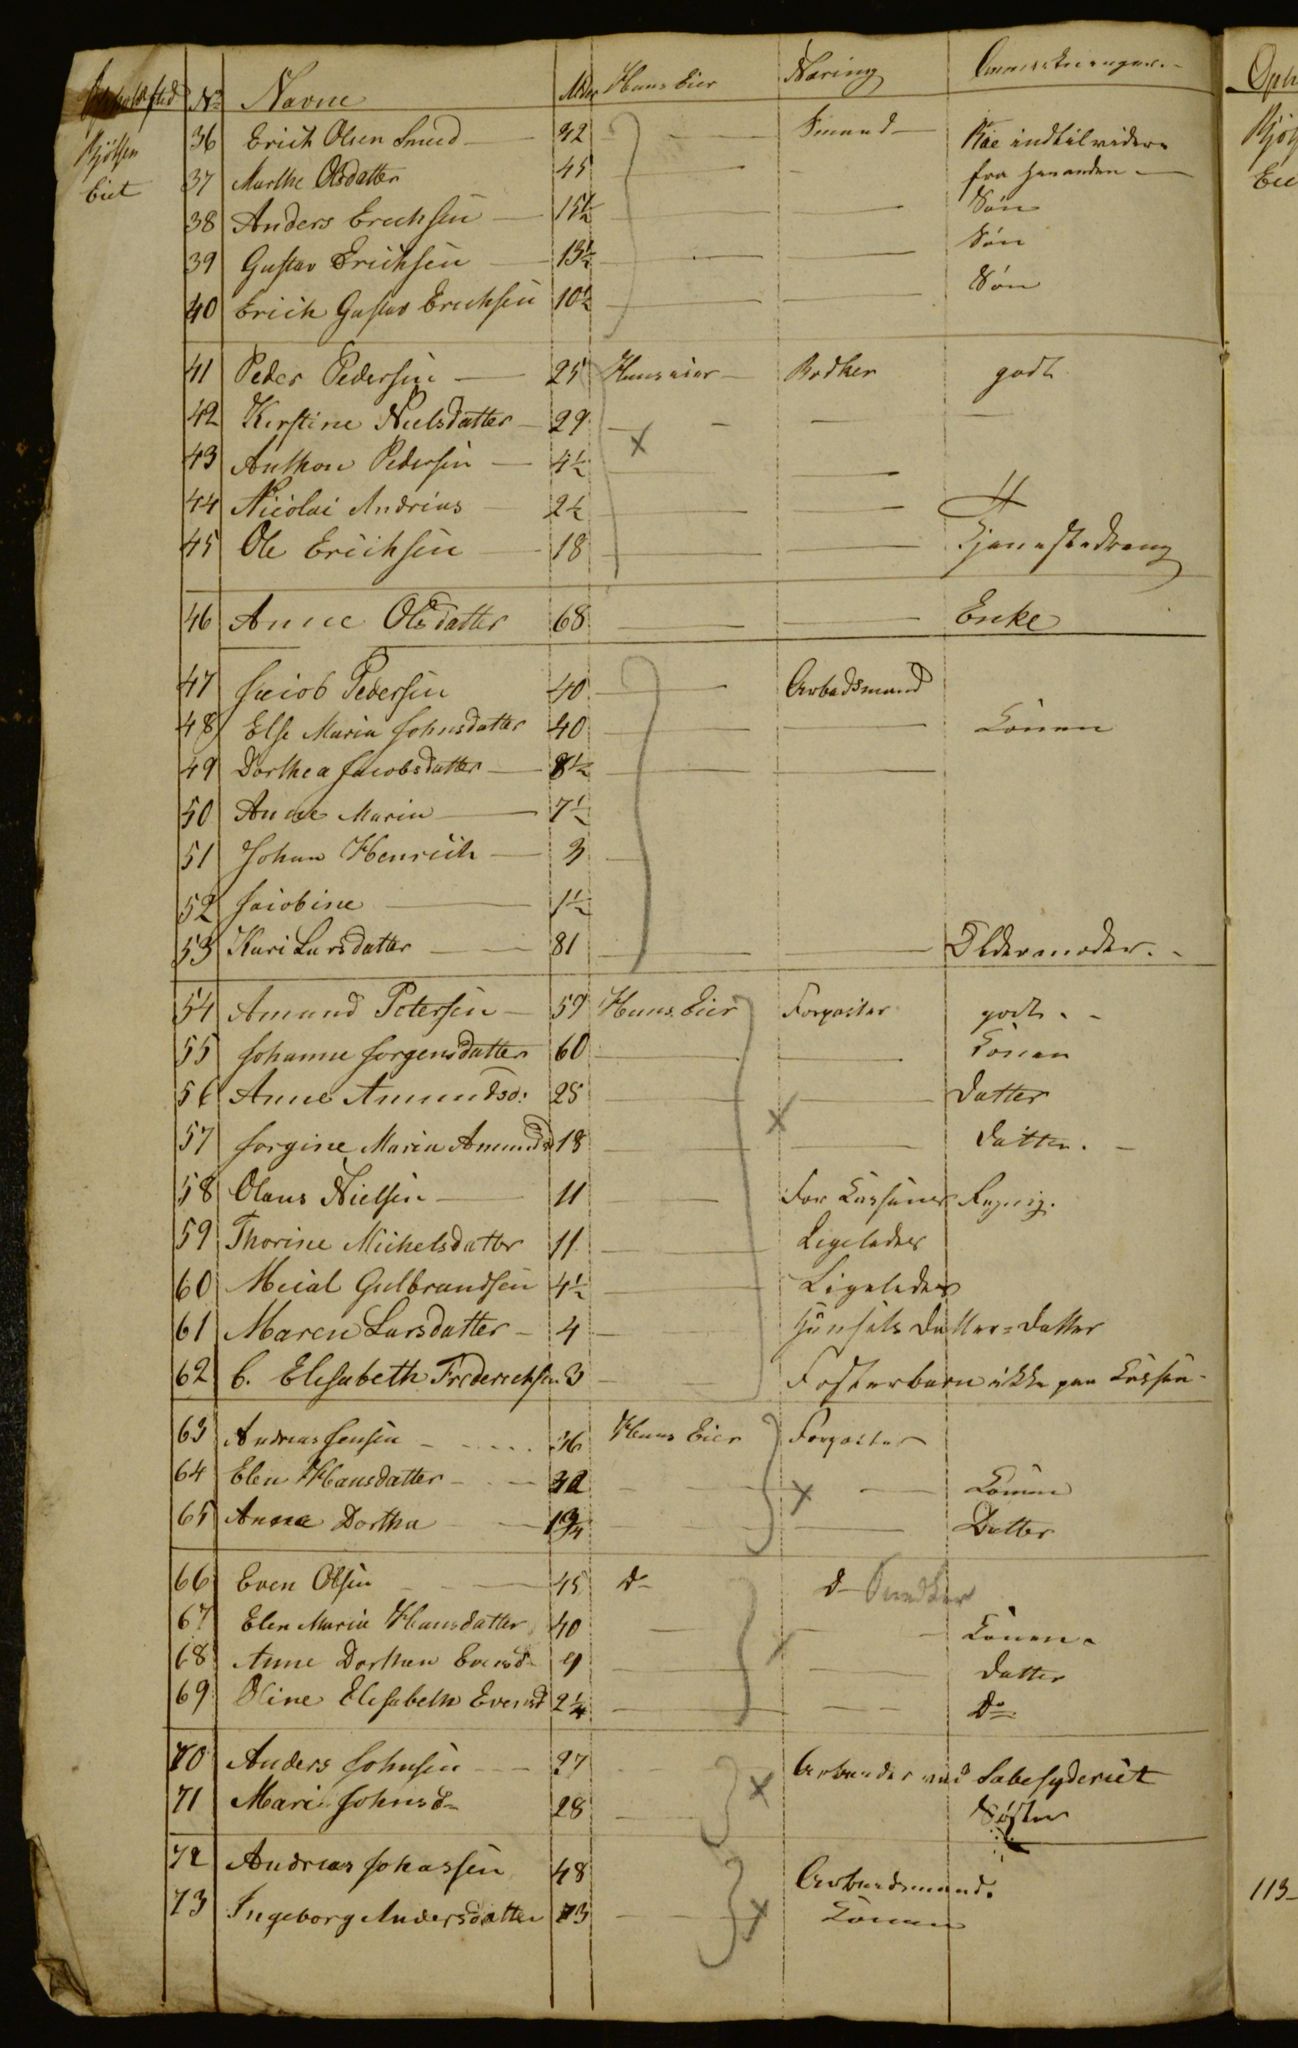 Opholdssted No Navne Alder Huus Eier Næring Anmærkninger.
Bjølsen 36 Erich Olsen Smed — 42 — Smed — Kae indtil videre
Eiet 37 Marthe Olsdatter 45 — - fra hinanden —
38 Anders Erichsen — 15½ — — Søn
39 Gustav Erichsen — 13½ — — Søn
40 Erich Gustav Erichsen 10½ — — Søn
41 Peder Pedersen — 25 Huuseier — Bødker godt
42 Kirstine Nielsdatter — 29 — - — —
43 Anthon Pedersen — 4½ —
44 Nicolai Andreas — 2½ — —
45 Ole Erichsen — 18 — — Tjenestedreng
46 Anne Olsdatter 68 — — Enke
47 Jacob Pedersen 40 — Arbedsmand
48 Else Maria Johnsdatter 40 — — Konen
49 Dorthea Jacobsdatter — 8½ — —
50 Anne Maria — 7½
51 Johan Henrich — 3 —
52 Jacobine — 1½
53 Kari Larsdatter — 81 — — Oldemoder. -
54 Amund Petersen — 59 Huus Eier Forpagter godt. -
55 Johanne Jorgensdatter 60 — — Konen
56 Anne Amundsd: 25 — — Datter
57 Jorgine Maria Amundsd 18 — — Datter. —
58 Olaus Nielsen — 11 — For Kassens Regnig.
59 Thorine Michelsdatter 11 — Ligeledes
60 Micial Gulbrandsen 4½ — Ligeledes
61 Maren Larsdatter — 4 — Datter=Datter
62 C. Elisabeth Frederichsen 3 — Fosterbarn ikke paa Kassen -
63 Andreas Jensen - - - - - 36 Huus Eier Forpagter
64 Elen Hansdatter - - - 32 - - — Konen
65 Anne Dorthea — 1¾ - - — Datter
66 Even Olsen - — 45 do d— Snedker
67 Elen Maria Hansdatter 40 — — - Konen -
68 Anne Dorthea Evensd— 9 — — Datter
69 Oline Elisabeth Evensd 2¼ — — Do
70 Anders Johnsen - - - 27 - - Arbeider ved Sæbesyderiet
71 Mari Johnsd— 28 — Søster
72 Andreas Johassen 48 Arbeidsmand.
73 Ingeborg Andersdatter 73 — Konen
Oph
Bjøl
Eie
113-